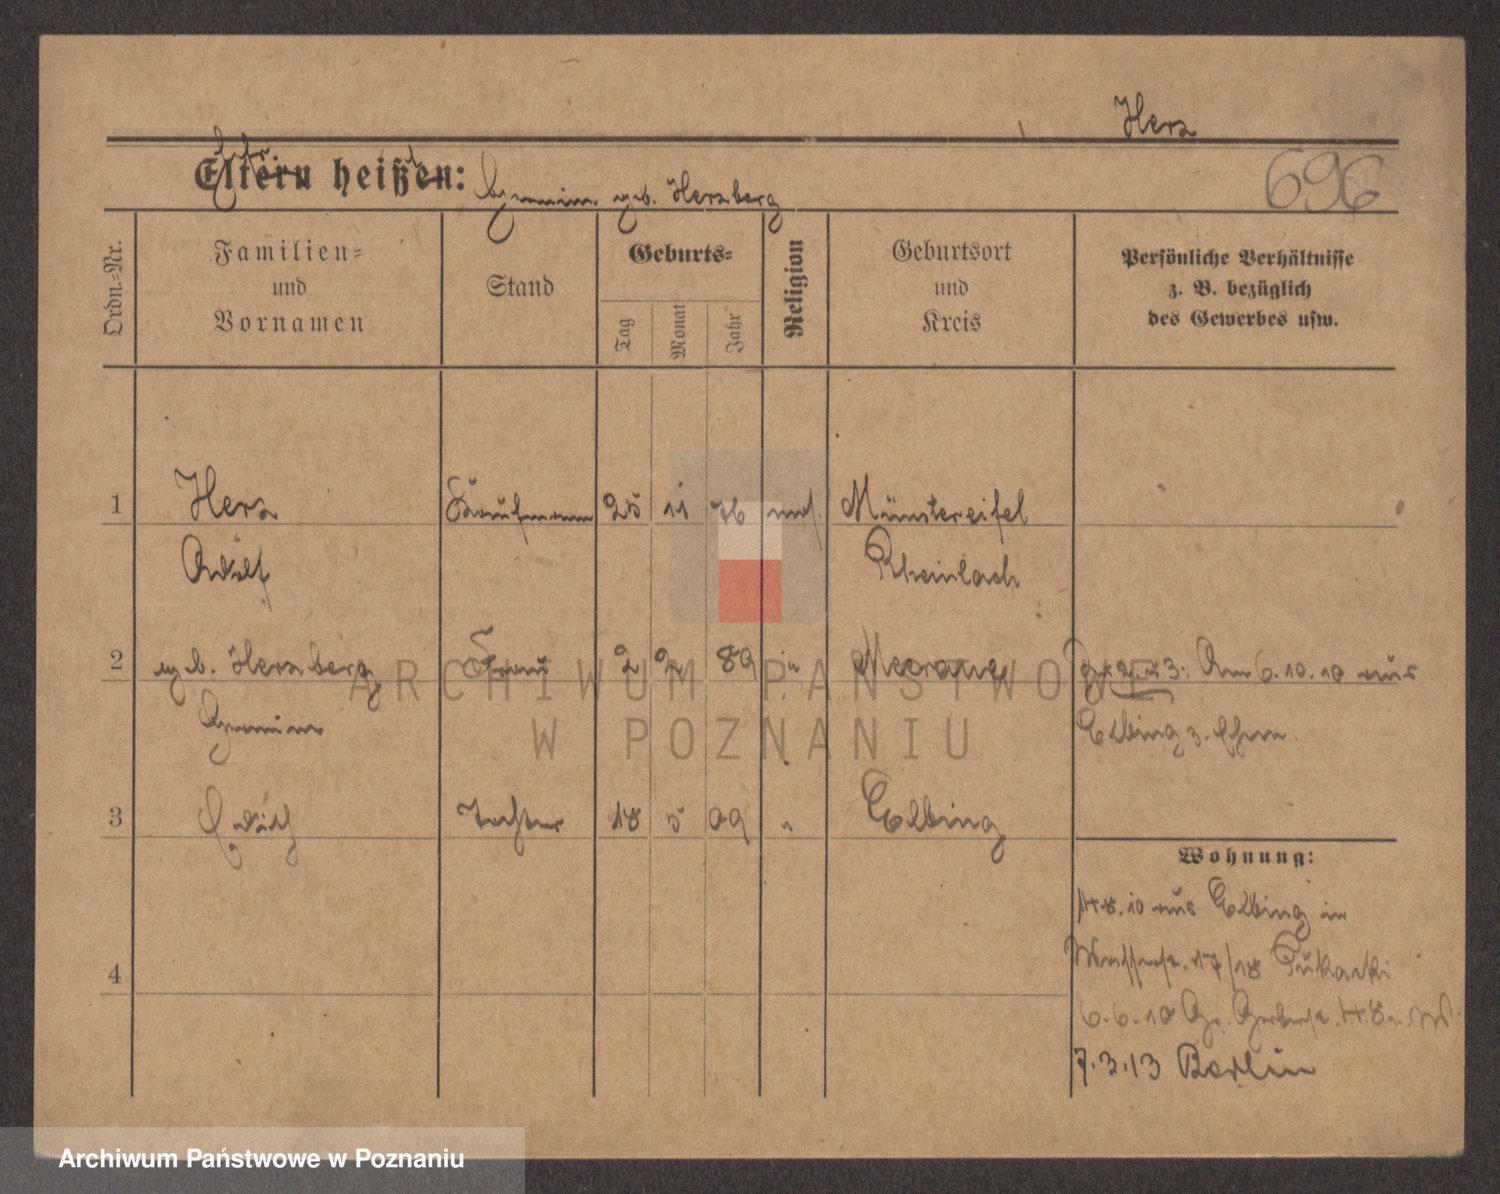 Herz
Eltern heißen:
geb. Herzberg
696
Ordn.-Nr.
Familien-
und
Vornamen
Stand
Geburts-
Tag
Monat
Jahr
Religion
Geburtsort
und
Kreis
Persönliche Verhältnisse
z. B. bezüglich
des Gewerbes usw.
1 Herz Kaufmann 25 11 76 mos. Münstereifel
Adolf Rheinbach
2 geb. Herzberg Frau 2 2 89 " Meerane Zu 2 u 3: Am 6.10.10 aus
Elbing z. Ehem.
3 Edith Tochter 18 5 09 " Elbing
Wohnung:
8.10 aus Elbing in
17/18
6.6.10 Gr. Gerberst.
7.3.13 Berlin
4
ARCHIWUM PAŃSTWOWE
W POZNANIU
Archiwum Państwowe w Poznaniu